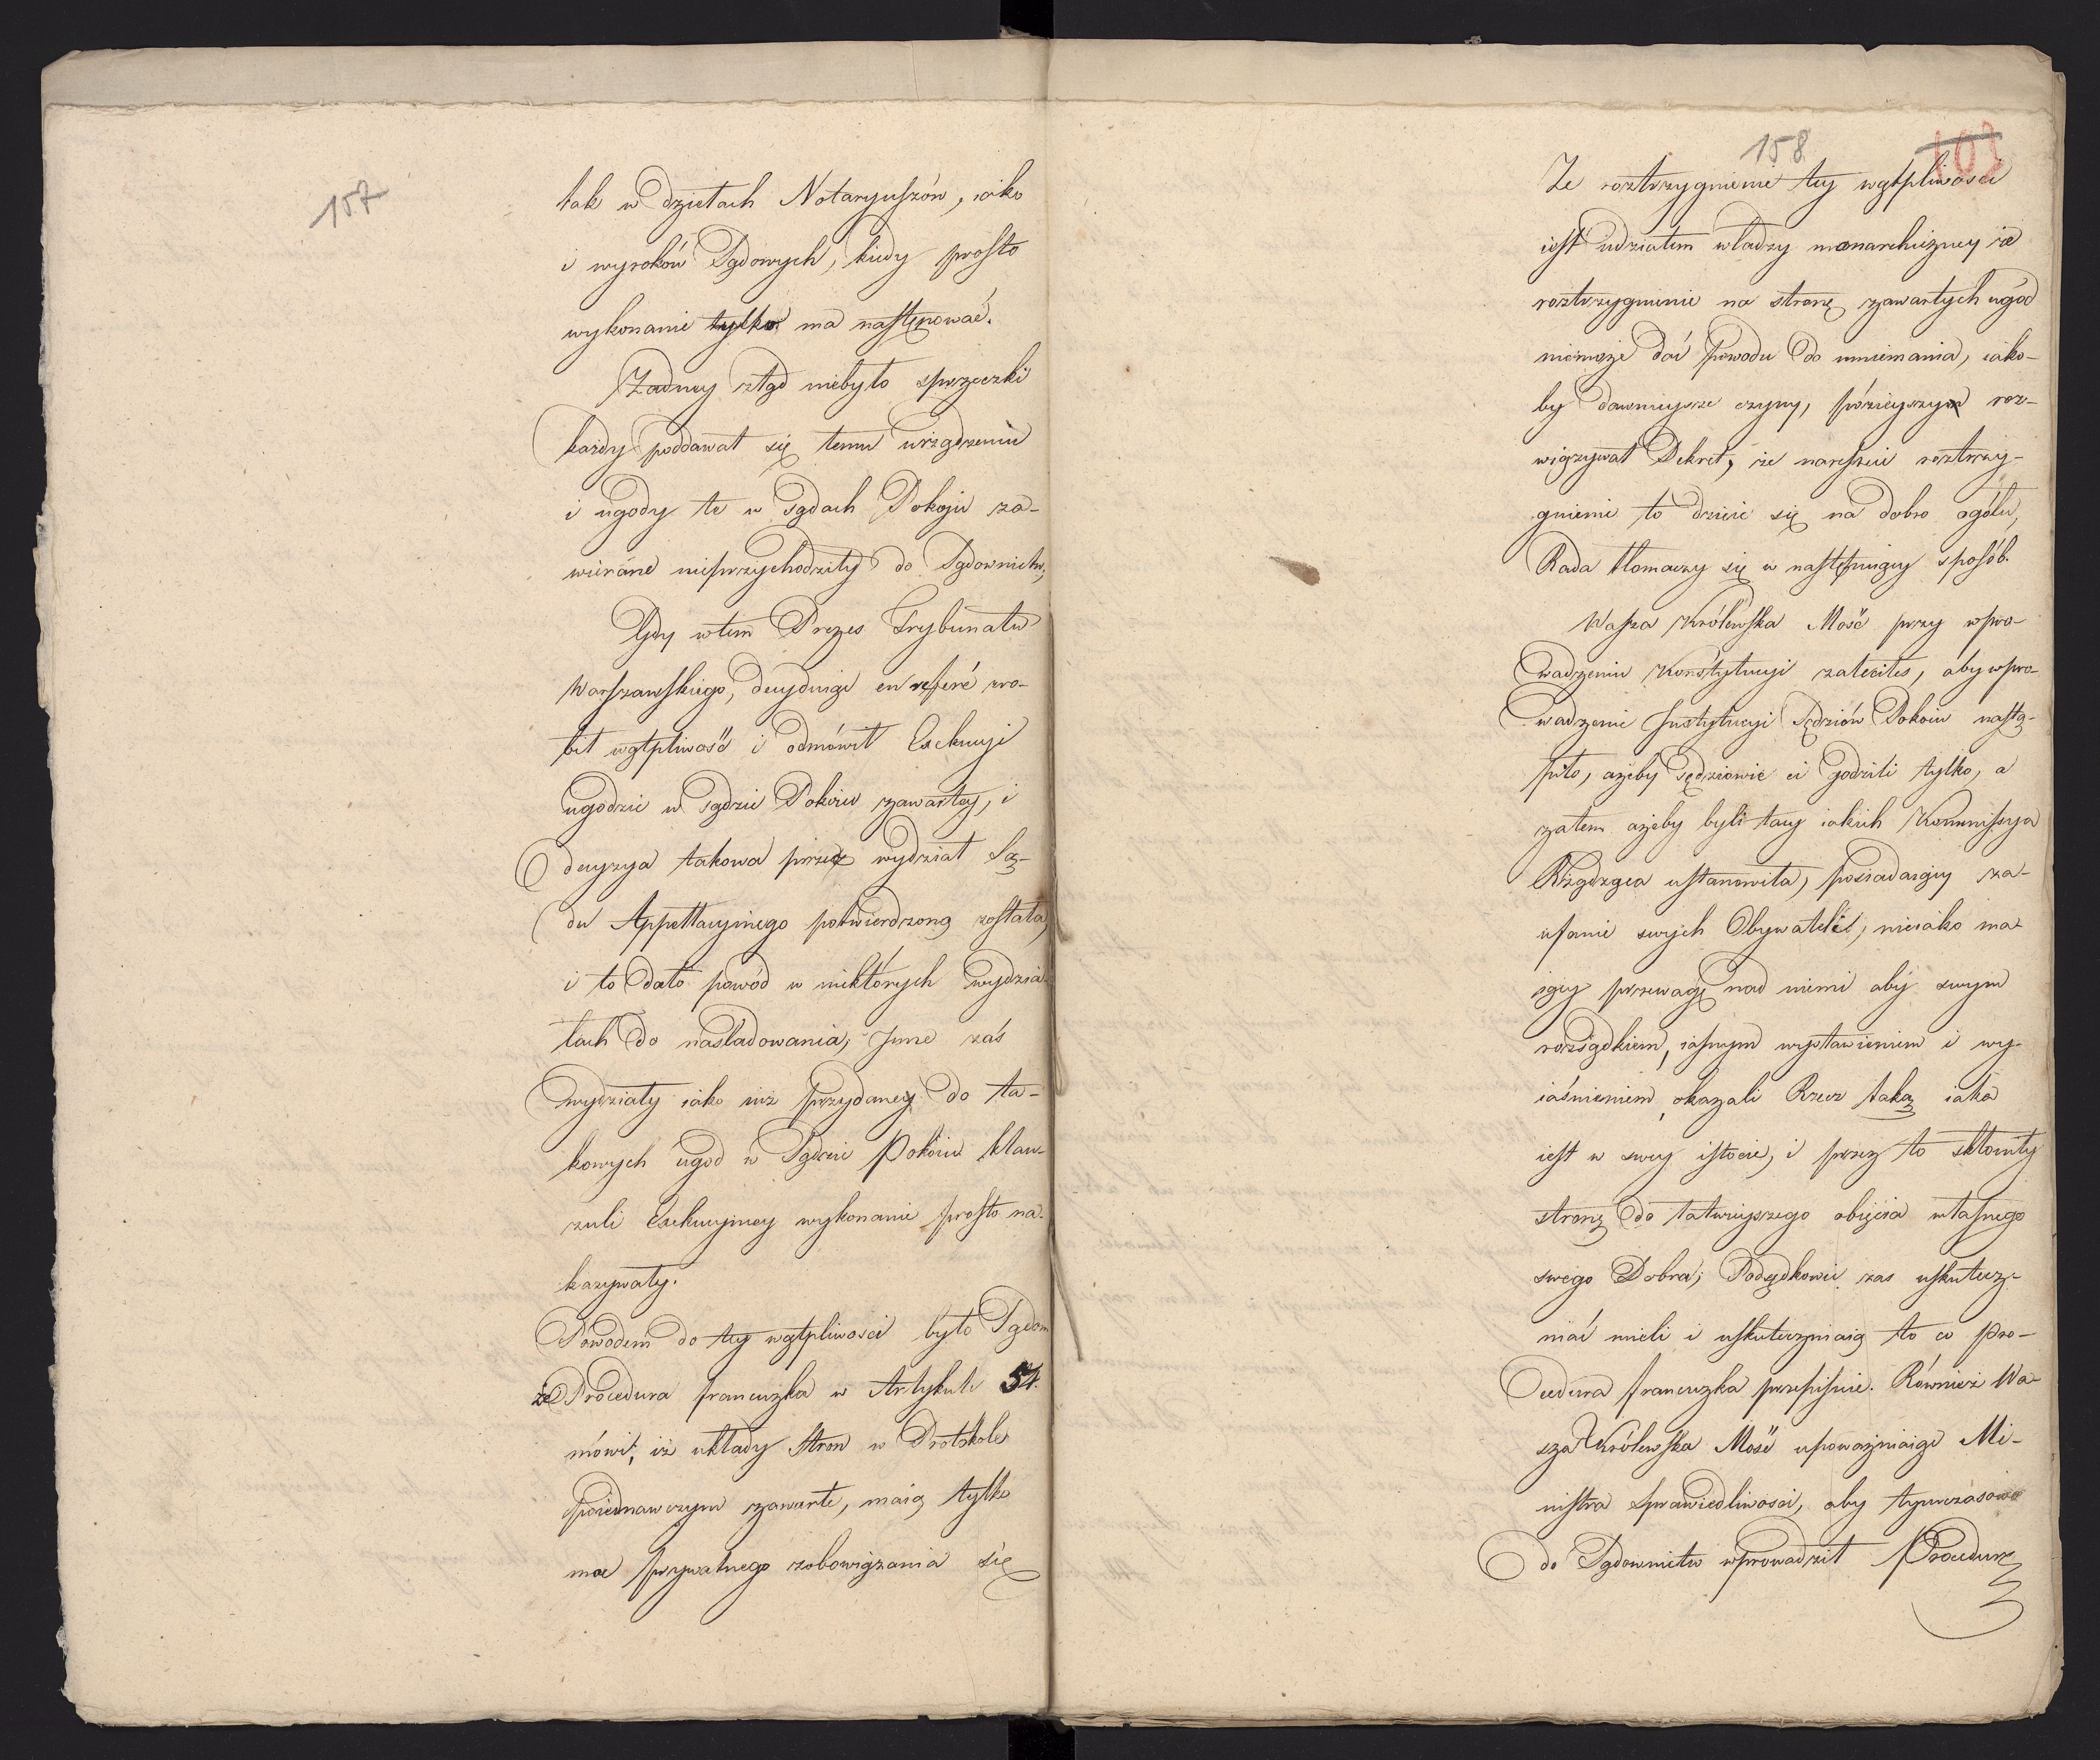 157
tak w dziełach Notaryuszów, iako
i wyroków Sądowych, kiedy prosto
wykonanie tylko ma następować.
Żadney ztąd niebyło sprzeczki
każdy poddawał się temu urządzeniu
i ugody te w Sądach Pokoju za-
wierane nieprzychodziły do Sądownictw,
Gdy wtem Prezes Trybunału
Warszawskiego, decydując en referé zro-
bił wątpliwość i odmówił Exekucyi
ugodzie w Sądzie Pokoiu zawartey, i
decyzya takowa przez wydział Są-
du Appellacyinego potwierdzoną została,
i to dało powód w niektórych wydzia-
łach do naśladowania, Inne zaś
wydziały iako iuż przydaney do ta-
kowych ugod w Sądzie Pokoiu klau-
zuli Exekucyiney wykonanie prosto na-
kazywały.
Powodem do tey wątpliwości było Sądom
że Procedura francuzka w Artykule 54.
mówi, iż układy stron w Protokole
poiednawczym zawarte, maią tylko
moc prywatnego zobowiązania się
158
103
Że roztrzygnienie tey wątpliwości
iest udziałem władzy monarchiczney że
roztrzygnienie na stronę zawartych ugod
niemoże dać powodu do mniemania, iako-
by dawnieysze czyny, późnieyszy roz-
wiązywał Dekret, że nareszcie roztrzy-
gnienie to dzieie się na dobro ogółu,
Rada tłomaczy się w następuiący sposób.
Wasza Królewska Mość przy wpro-
wadzeniu Konstytucyi zaleciłes, aby wpro-
wadzenie Instytucyi Sędziów Pokoiu nastą-
piło, ażeby Sędziowie ci godzili tylko, a
zatem ażeby byli tacy iakich Kommissya
Rządząca ustanowiła, posiadaiący za-
ufanie swych Obywateli, nieiako ma-
iący przewagę nad niemi aby swym
rozsądkiem, iasnym wystawieniem i wy-
iaśnieniem, okazali Rzecz taką iaka
iest w swey istocie, i przez to skłonili
stronę do łatwieyszego obięcia własnego
swego Dobra; Podsędkowie zas uskutecz-
niać mieli i uskuteczniaią to co Pro-
cedura francuzka przepisuie. Również Wa-
sza Królewska Mość upoważniaiąc Mi-
nistra Sprawiedliwości, aby tymczasowo
do Sądownictw wprowadził Procedurę